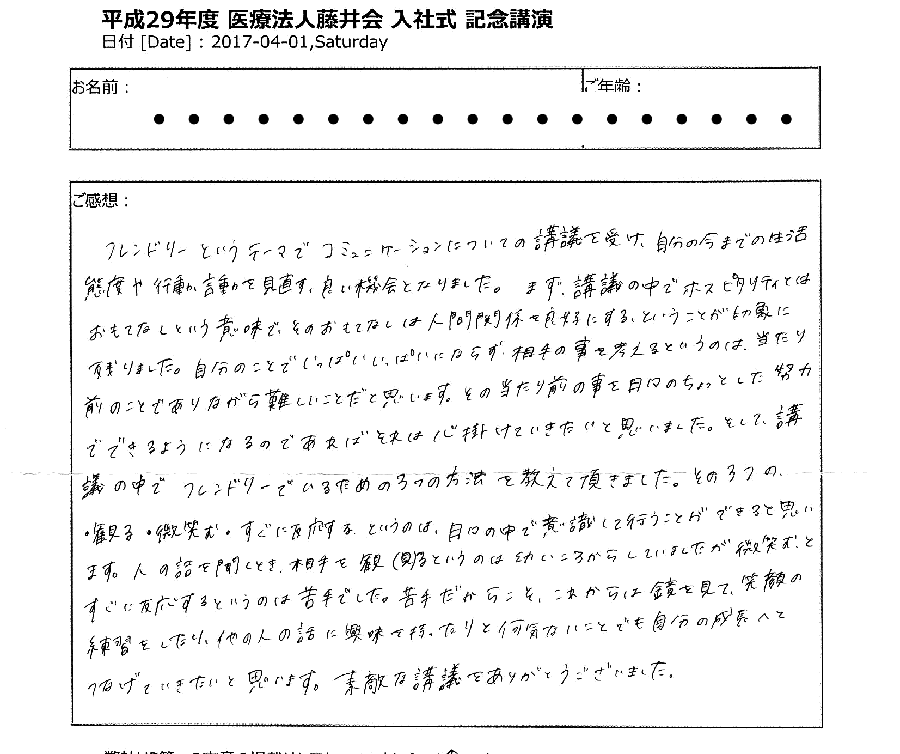 平成29年度 医療法人藤井会 入社式 記念講演
日付 [Date] : 2017-04-01,Saturday
お名前：
ご年齢：
ご感想：
フレンドリーというテーマでコミュニケーションについての講議を受け、自分の今までの生活
態度や行動、言動を見直す、良い機会となりました。まず、講議の中でホスピタリティとは
おもてなしという意味で、そのおもてなしは人間関係を良好にする、ということが印象に
残りました。自分のことでいっぱいいっぱいにならず相手の事を考えるというのは、当たり
前のことでありながら難しいことだと思います。その当たり前の事を日々のちょっとした努力
でできるようになるのであればそれは心掛けていきたいと思いました。そして、講
議の中でフレンドリーでいるための3つの方法を教えて頂きました。その3つの、
・観る・微笑む・すぐに反応する、というのは、日々の中で意識して行うことができると思い
ます。人の話を聞くとき、相手を観(見)るというのは幼いころからしていましたが微笑む、と
すぐに反応するというのは苦手でした。苦手だからこそ、これからは鏡を見て、笑顔の
練習をしたり、他の人の話に興味を持ったりと何気ないことでも自分の成長へと
つなげていきたいと思います。素敵な講議をありがとうございました。